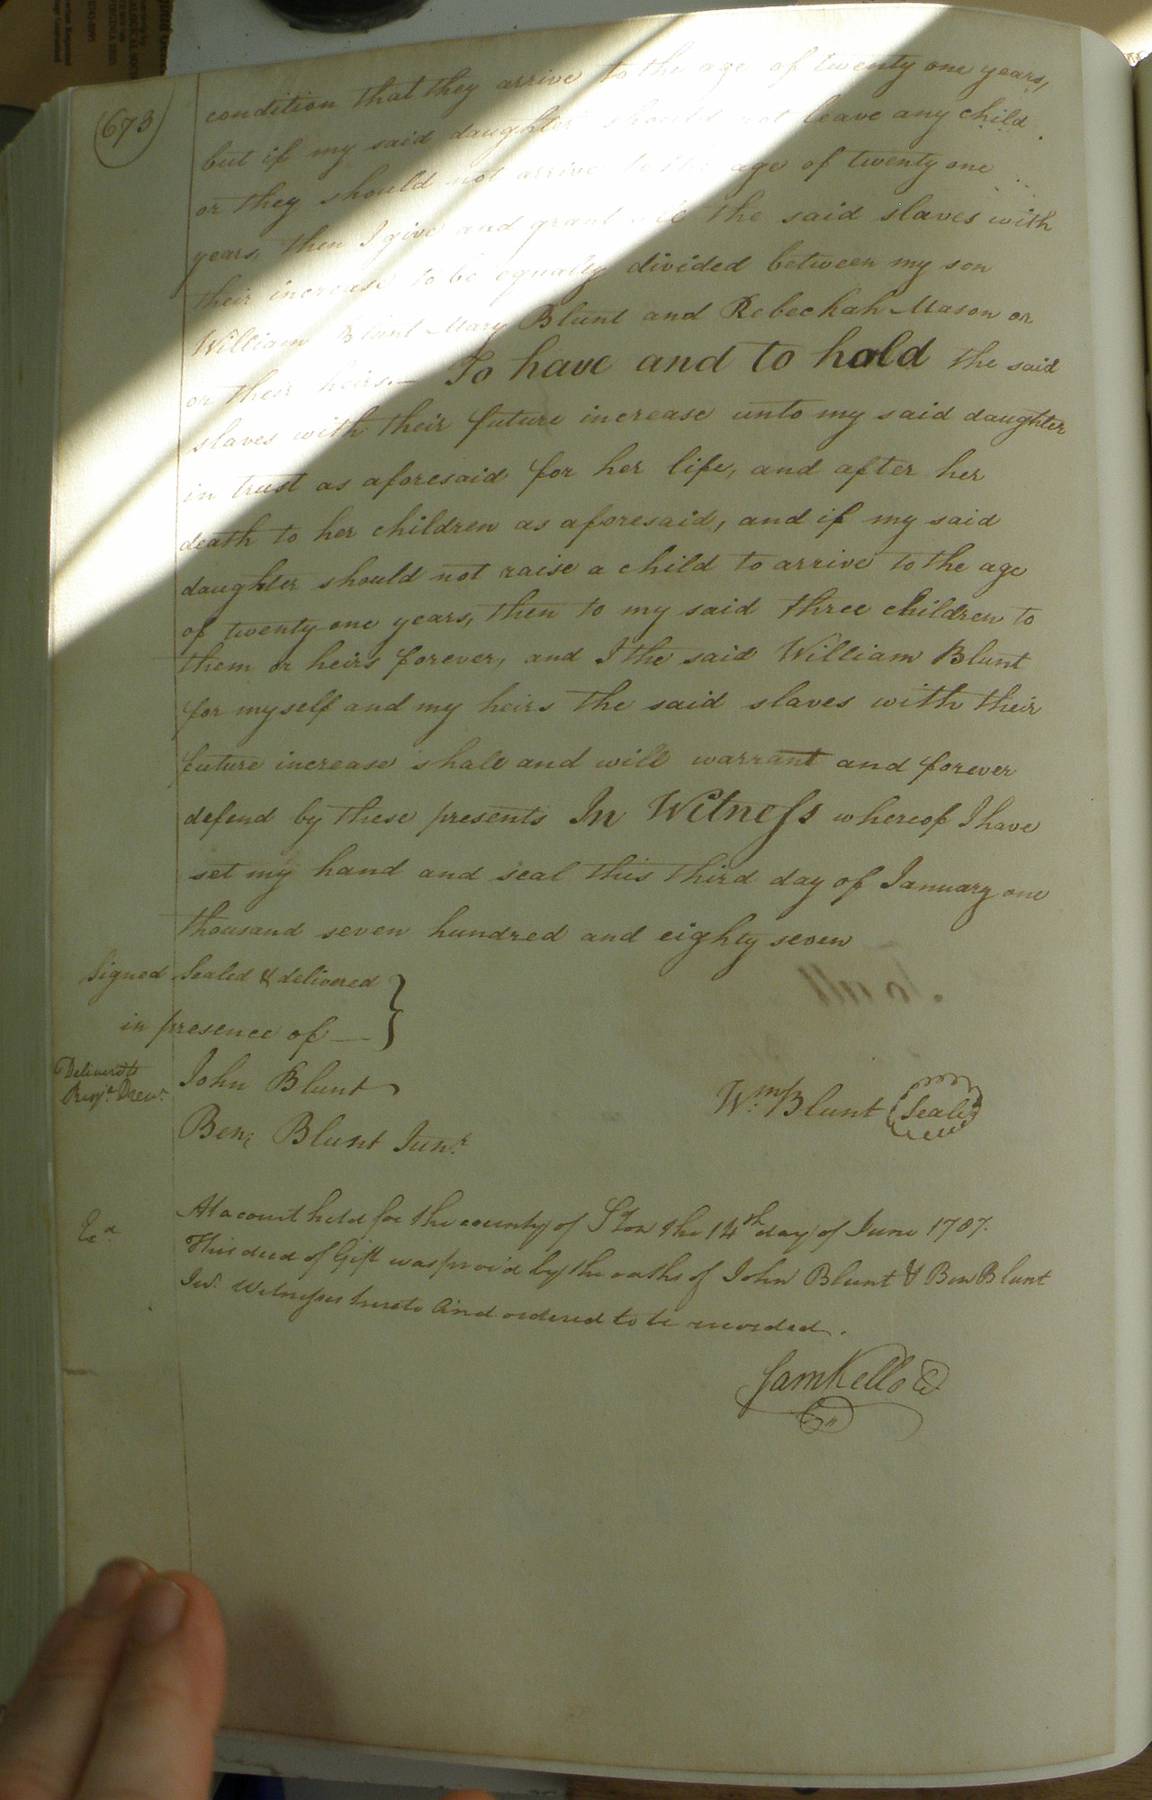 (673)
condition that they arrive to the age of twenty one years,
but if my said daughter should not leave any child
or they should not arrive to the age of twenty one
years, then I give and grant all the said slaves with
their increase to be equally divided between my son
William Blunt Mary Blunt and Rebeckah Mason or
or their heirs. — To have and to hold the said
slaves with their future increase unto my said daughter
in trust as aforesaid for her life, and after her
death to her children as aforesaid, and if my said
daughter should not raise a child to arrive to the age
of twenty one years, then to my said three children to
them or heirs forever, and I the said William Blunt
for myself and my heirs the said slaves with their
future increase shall and will warrant and forever
defend by these presents In Witness whereof I have
set my hand and seal this third day of January one
thousand seven hundred and eighty seven
Signed Sealed & delivered
in presence of —
Deliver'd to
Benj.a Drew.
John Blunt
Wm. Blunt (Seal)
Benj Blunt Junr.
Ex.d
At a court held for the county ofSton the 14th day of June 1787.
This deed of Gift was prov'd by the oaths of John Blunt & Ben Blunt
Jur. Witnesses hereto And ordered to be recorded.
Sam Kello